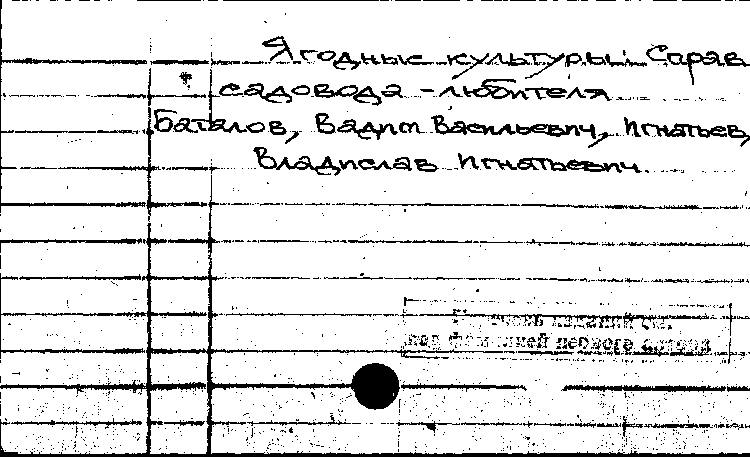 Ягодные культуры: Справ
садовода-любителя
Баталов, Вадим Васильевич, Игнатьев,
Владислав Игнатьевич.
Перечень изданий см.
под фамилией первого автора